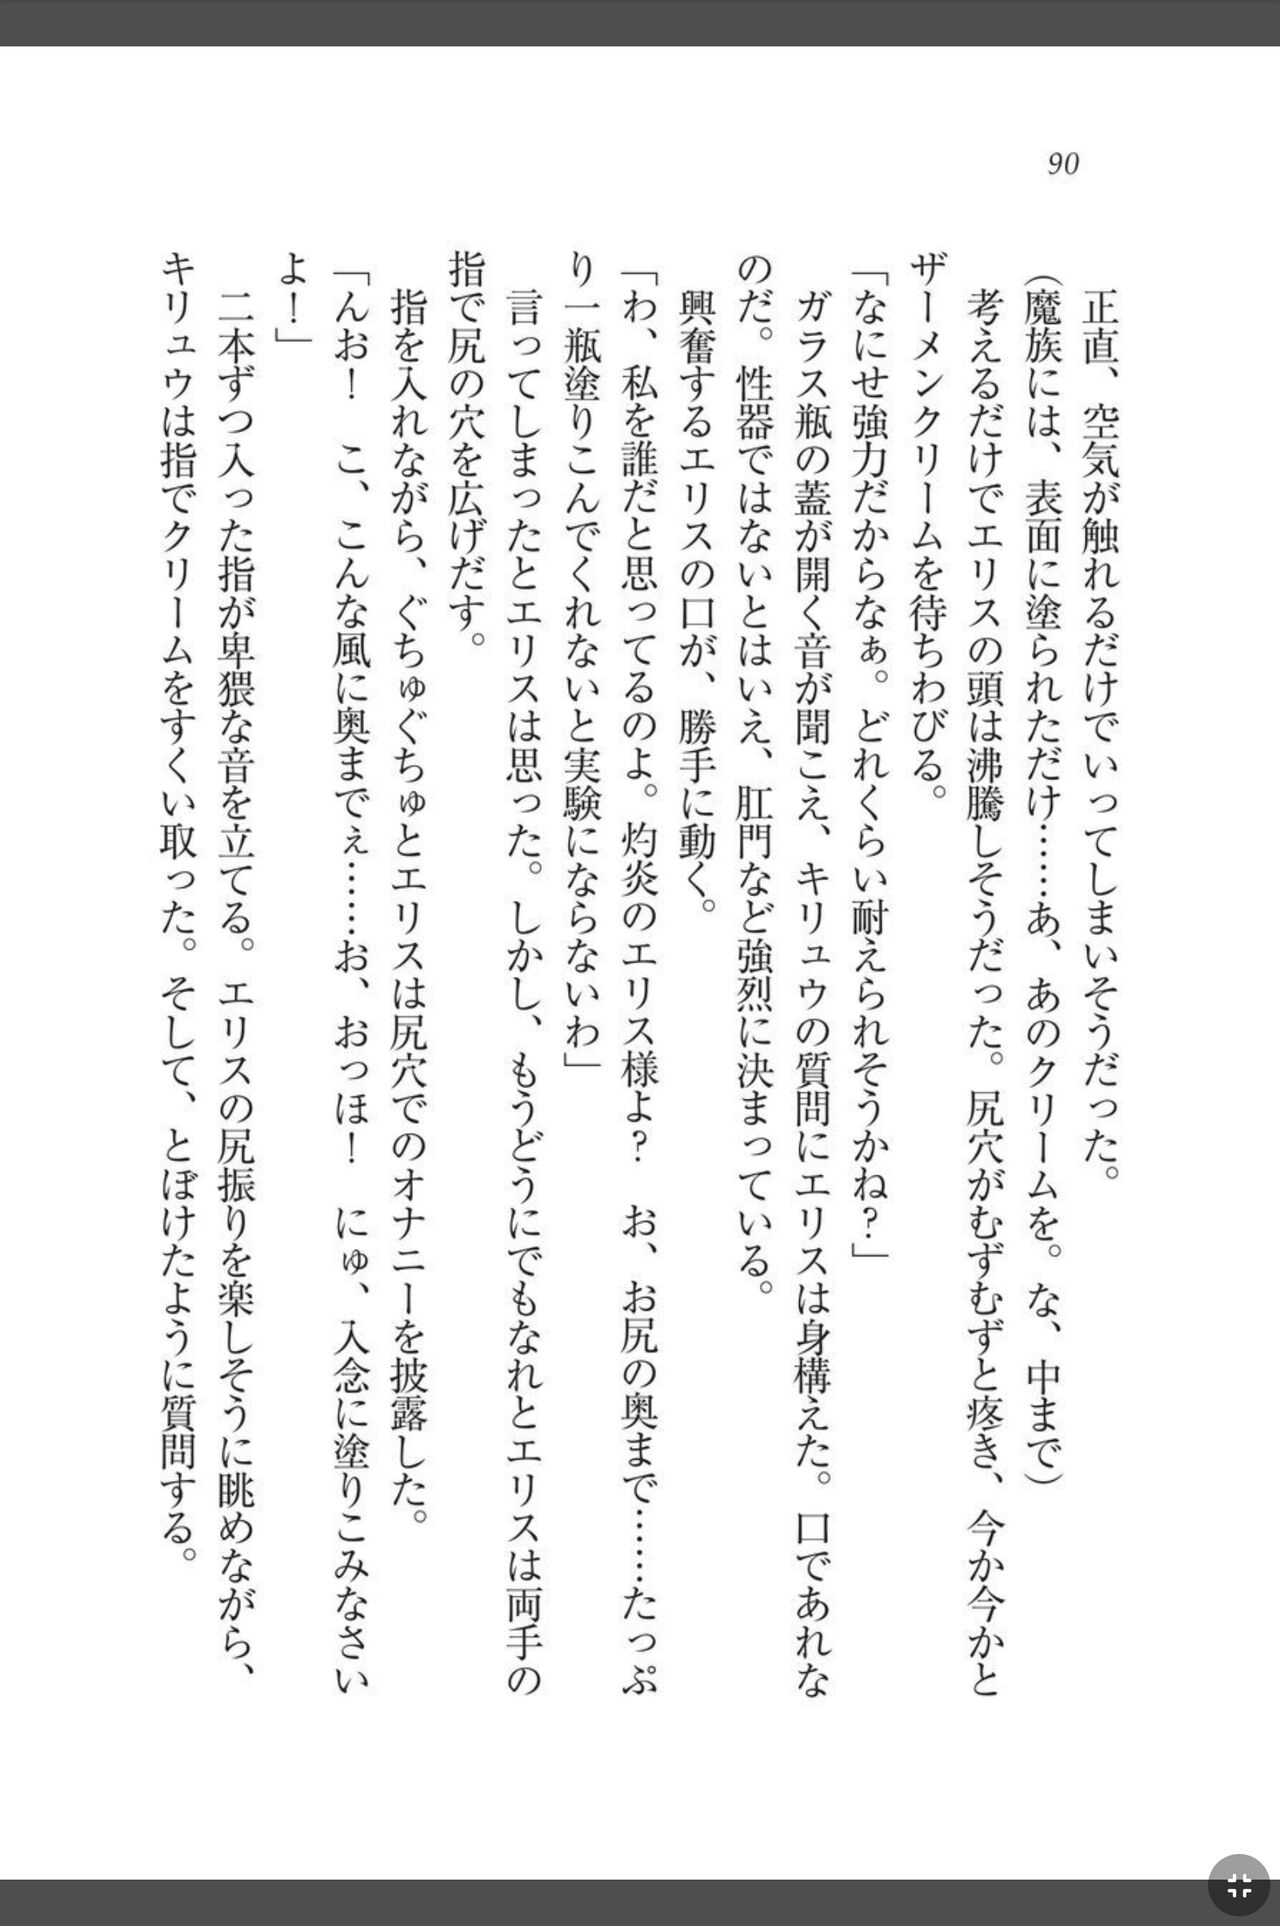 90
正直、空気が触れるだけでいってしまいそうだった。
（魔族には、表面に塗られただけ……あ、あのクリームを。な、中まで）
考えるだけでエリスの頭は沸騰しそうだった。尻穴がむずむずと疼き、今か今かと
ザーメンクリームを待ちわびる。
「なにせ強力だからなぁ。どれくらい耐えられそうかね？」
ガラス瓶の蓋が開く音が聞こえ、キリュウの質問にエリスは身構えた。口であれな
のだ。性器ではないとはいえ、肛門など強烈に決まっている。
興奮するエリスの口が、勝手に動く。
「わ、私を誰だと思ってるのよ。灼炎のエリス様よ？　お、お尻の奥まで……たっぷ
り一瓶塗りこんでくれないと実験にならないわ」
言ってしまったとエリスは思った。しかし、もうどうにでもなれとエリスは両手の
指で尻の穴を広げだす。
指を入れながら、ぐちゅぐちゅとエリスは尻穴でのオナニーを披露した。
「んお！　こ、こんな風に奥までぇ……お、おっほ！　にゅ、入念に塗りこみなさい
よ！」
二本ずつ入った指が卑猥な音を立てる。エリスの尻振りを楽しそうに眺めながら、
キリュウは指でクリームをすくい取った。そして、とぼけたように質問する。